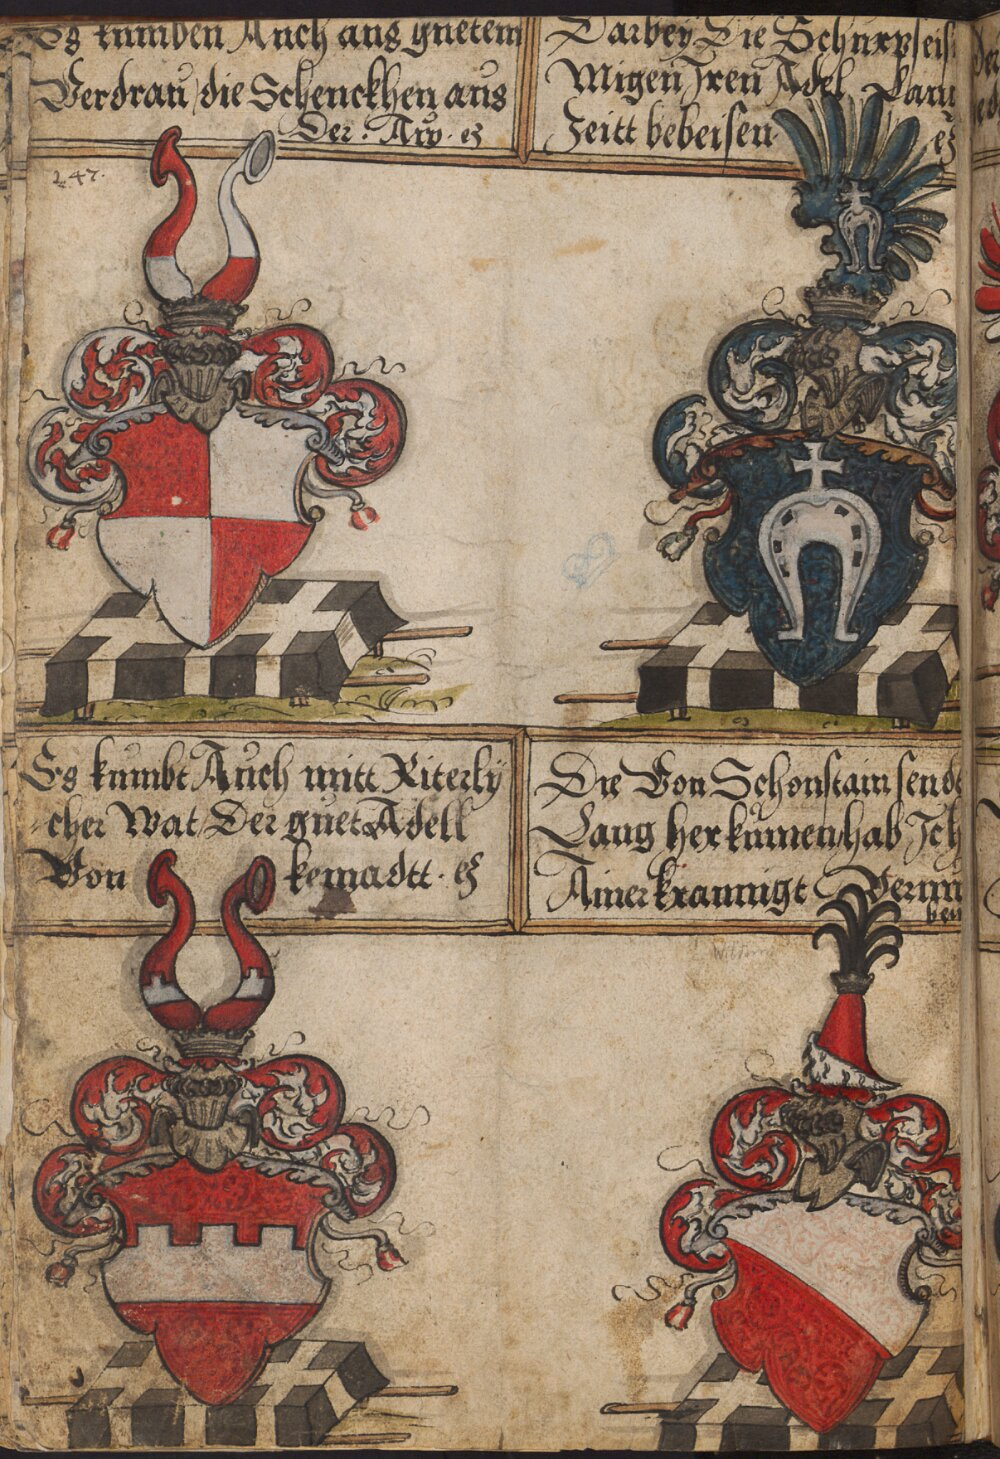 Es kumben Auch aus guetem
Verdrau / die Schenckhen aus
Der : Aw · etc
Darbey Die Schurpfeis
Migen Iren Adel Lanng
Zeitt bebeisen · etc
247.
Es kumbt Auch mitt Riterly
cher Wat / Der guet Adell
Von kemadtt · etc
Die Von Schonstain sendt
Lang her kumen / hab Ich
Ainer krannigt Vernu
ben